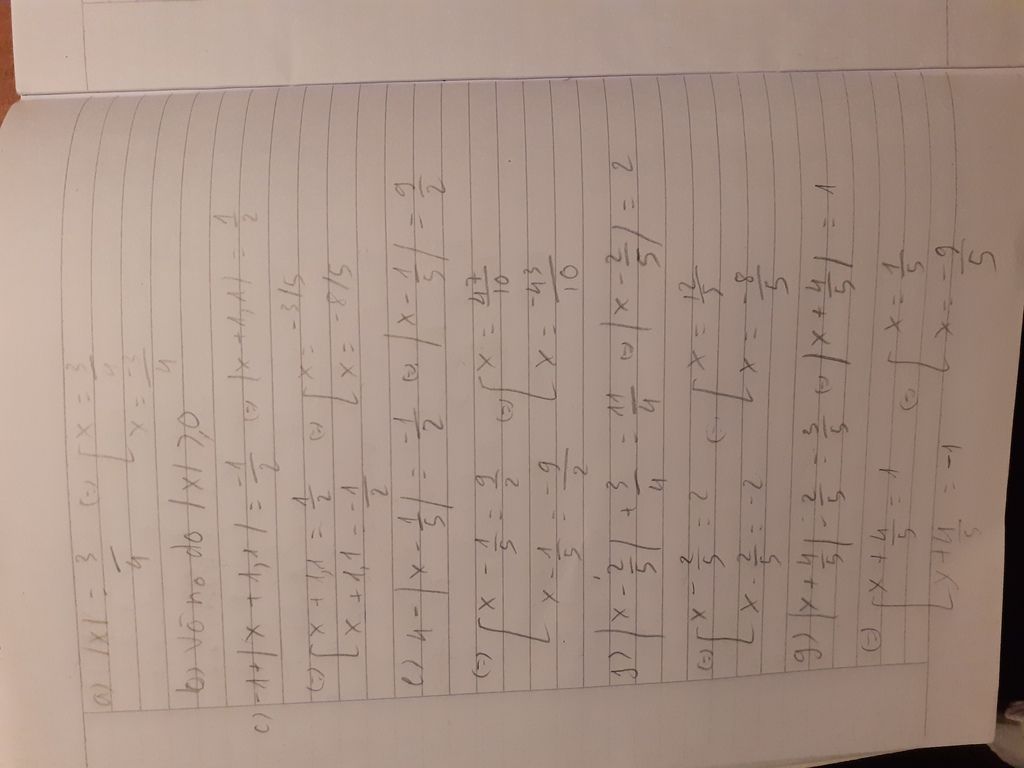 a) |x| = 3/4 (=) [ x = 3/4
x = -3/4
b) vô n0 do |x| ≥ 0
c) -1 + |x + 1,1| = -1/2 (=) |x + 1,1| = 1/2
(=) [ x + 1,1 = 1/2 (=) [ x = -3/5
x + 1,1 = -1/2 x = -8/5
e) 4 - |x - 1/5| = -1/2 (=) |x - 1/5| = 9/2
(=) [ x - 1/5 = 9/2 (=) [ x = 47/10
x - 1/5 = -9/2 x = -43/10
f) |x - 2/5| + 3/4 = 11/4 (=) |x - 2/5| = 2
(=) [ x - 2/5 = 2 (=) [ x = 12/5
x - 2/5 = -2 x = -8/5
g) |x + 4/5| - 2/5 = 3/5 (=) |x + 4/5| = 1
(=) [ x + 4/5 = 1 (=) [ x = 1/5
x + 4/5 = -1 x = -9/5